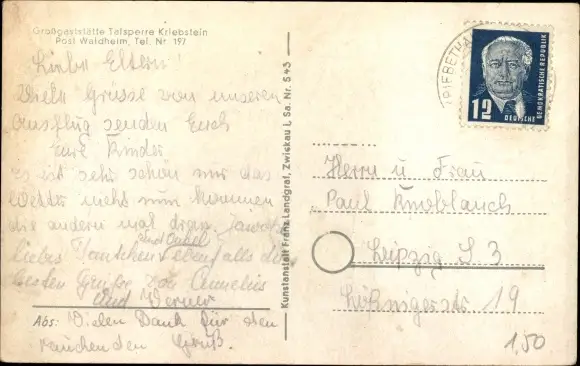 Großgaststätte Talsperre Kriebstein
Post Waldheim, Tel. Nr. 197
Liebe Eltern!
Viele Grüsse von unseren
Ausflug senden Euch
Eure Kinder
es ist sehr schön nur das
Wetter nicht nun kommen
die andern mal dran.
und Onkel
liebes Tantchen ebenfalls die
besten Grüße von
und Werner
Abs: Vielen Dank für den
rauchenden Gruß.
Kunstanstalt Franz Landgraf, Zwickau i. Sa. Nr. 543
12
DEUTSCHE
DEMOKRATISCHE REPUBLIK
Herrn u Frau
Paul Knoblauch
Leipzig S 3
Lößnigerstr 19
1,50